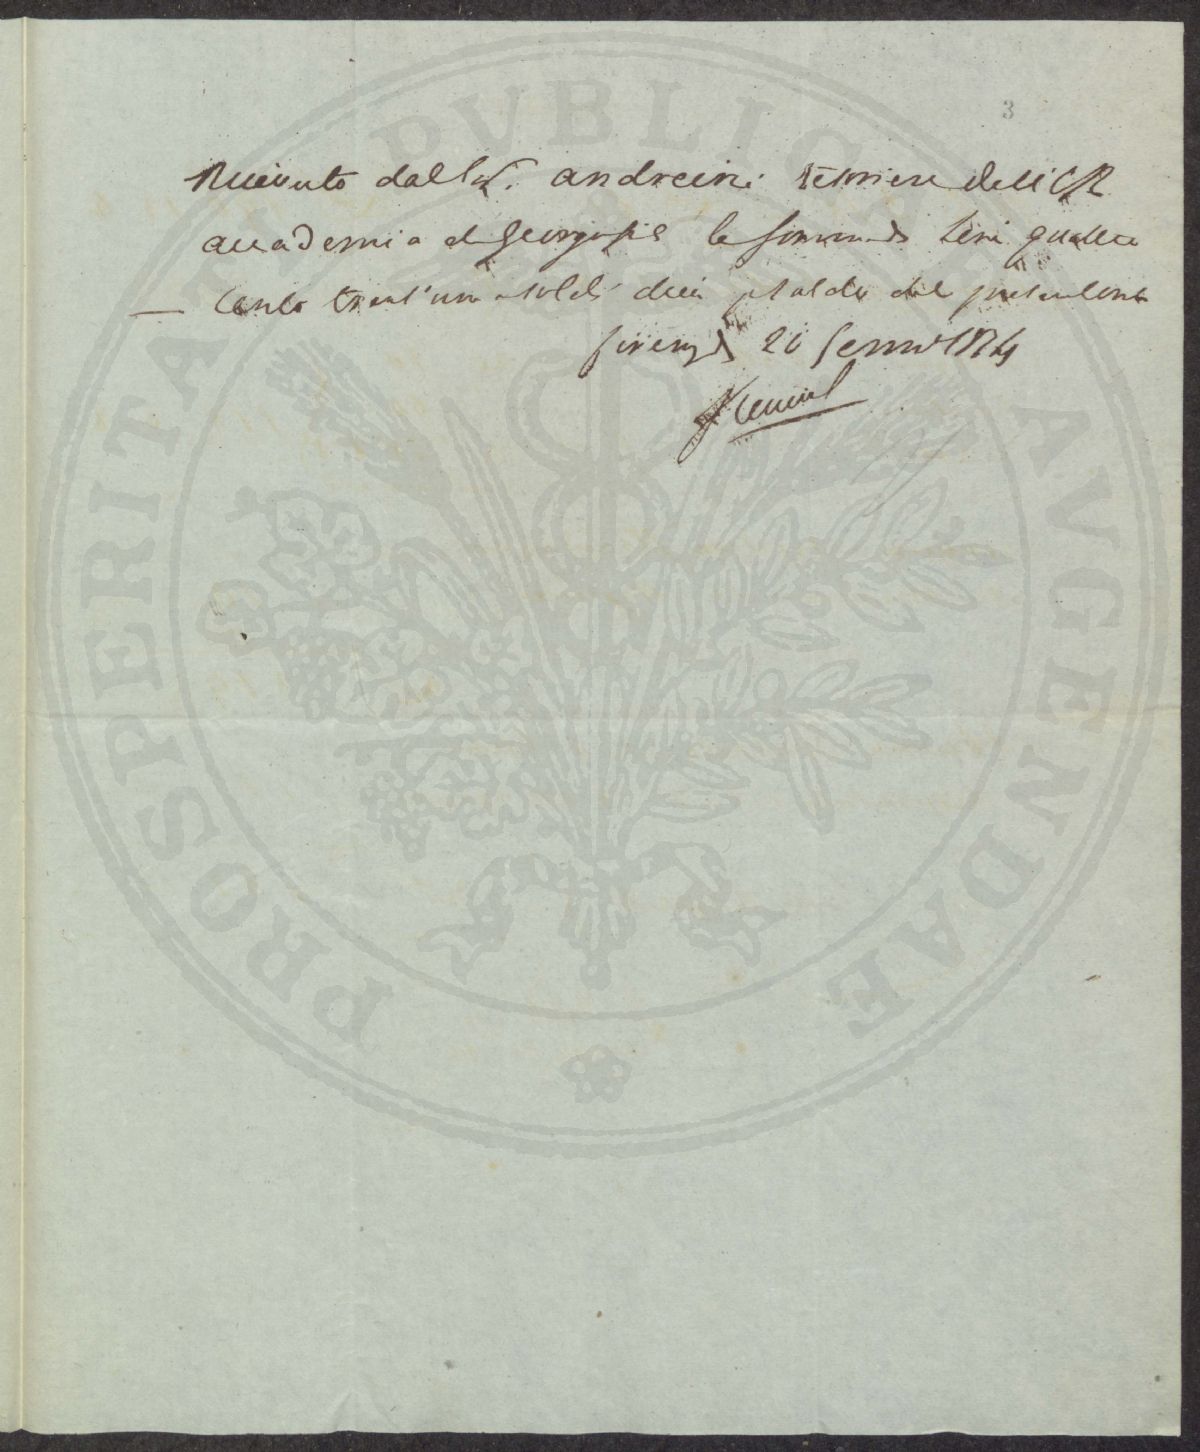 3
Ricevuto dal Sr. andreini tesoriere dell' I R
accademia de Georgofili la somma di Lire quattro
cento trent'un e soldi dieci p saldo del presente conto
firenze 26 Genn
PROSPERITATI PVBLICAE AVGENDAE